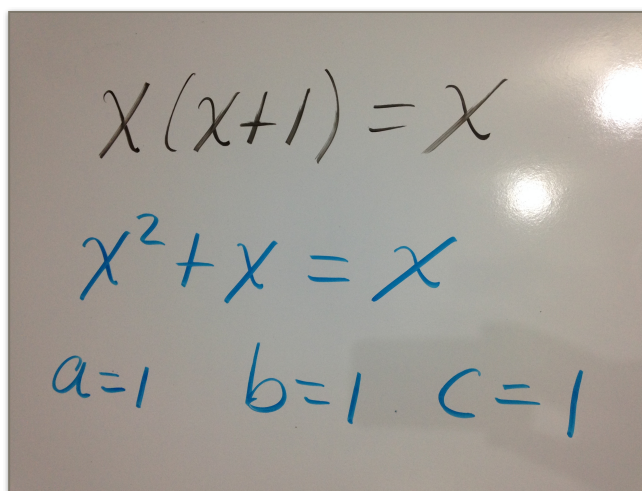 x(x+1) = x
x² + x = x
a=1 b=1 c=1